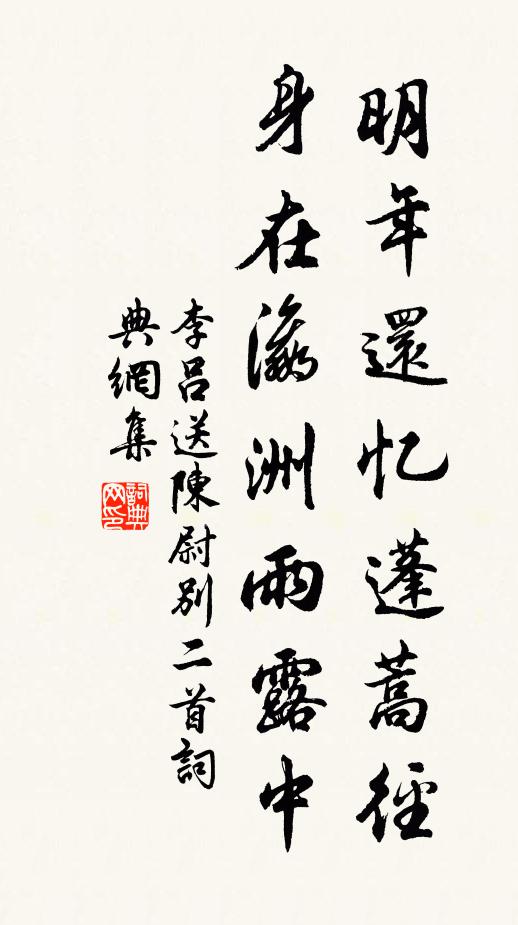 明年還忆蓬蒿徑
身在瀛洲雨露中
李呂送陳尉别二首詞
典網集
詞典
网印